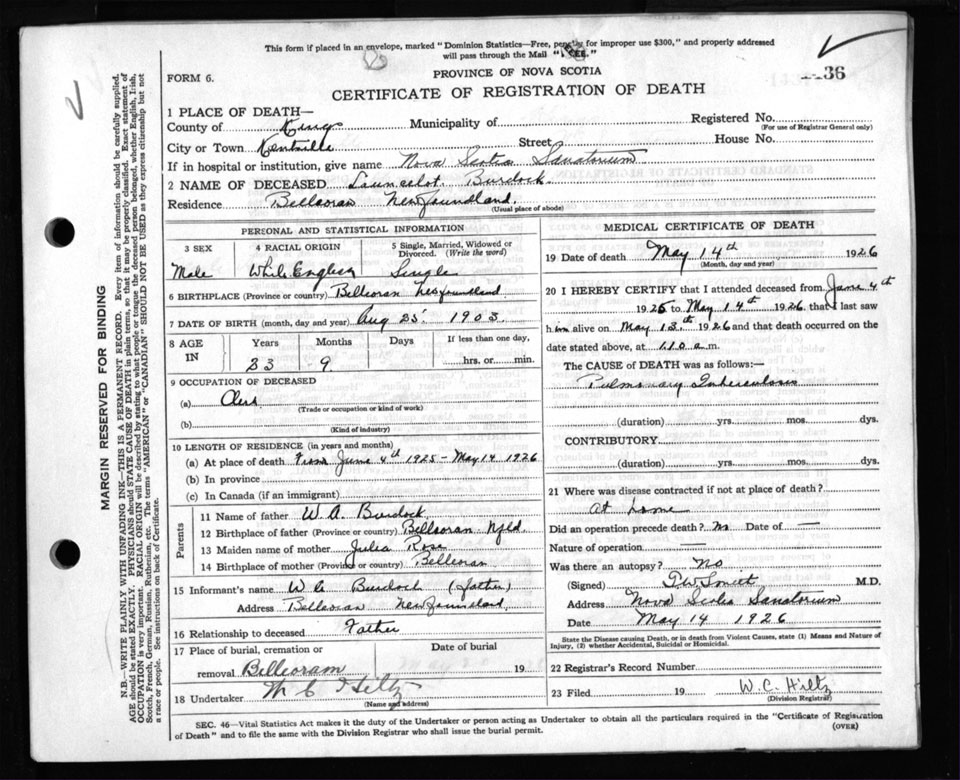 This form if placed in an envelope, marked "Dominion Statistics—Free, penalty for improper use $300," and properly addressed
will pass through the Mail "FREE."
36
PROVINCE OF NOVA SCOTIA
FORM 6.
CERTIFICATE OF REGISTRATION OF DEATH
1 PLACE OF DEATH—
Registered No.
(For use of Registrar General only)
County of Kings Municipality of
City or Town Kentville Street House No.
If in hospital or institution, give name Nova Scotia Sanatorium
2 NAME OF DECEASED Launcelot Burdock
Residence Belleoram Newfoundland.
(Usual place of abode)
PERSONAL AND STATISTICAL INFORMATION
3 SEX
4 RACIAL ORIGIN
5 Single, Married, Widowed or
Divorced. (Write the word)
Male White English Single
6 BIRTHPLACE (Province or country) Belleoram Newfoundland.
7 DATE OF BIRTH (month, day and year) Aug 25 1903
8 AGE
IN
Years Months Days
If less than one day,
23 9 hrs. or min.
9 OCCUPATION OF DECEASED
(a) Clerk
(Trade or occupation or kind of work)
(b)
(Kind of industry)
10 LENGTH OF RESIDENCE (in years and months)
(a) At place of death From June 4th 1925 - May 14 1926
(b) In province
(c) In Canada (if an immigrant)
Parents
11 Name of father W. A. Burdock
12 Birthplace of father (Province or country) Belleoram Nfld.
13 Maiden name of mother Julia Rose
14 Birthplace of mother (Province or country) Belleoram
15 Informant's name Burdock (father)
Address Belleoram Newfoundland.
16 Relationship to deceased Father
17 Place of burial, cremation or
Date of burial
removal Belleoram 19
18 Undertaker W C Hiltz
(Name and address)
MEDICAL CERTIFICATE OF DEATH
19 Date of death May 14th 1926
(Month, day and year)
20 I HEREBY CERTIFY that I attended deceased from June 4th
1925 to May 14th 1926 that I last saw
him alive on May 13th 1926 and that death occurred on
the date stated above, at 1.10 a.m.
The CAUSE of DEATH was as follows:—
Pulmonary Tuberculosis
(duration) yrs. mos. dys.
CONTRIBUTORY
(duration) yrs. mos. dys.
21 Where was disease contracted if not at place of death?
At home
Did an operation precede death? No Date of —
Nature of operation —
Was there an autopsy? No
(Signed) M.D.
Address Nova Scotia Sanatorium
Date May 14 1926
State the Disease causing Death, or in death from Violent Causes, state (1) Means and Nature of
Injury, (2) whether Accidental, Suicidal or Homicidal.
22 Registrar's Record Number
23 Filed 19 W. C. Hiltz
(Division Registrar)
SEC. 46—Vital Statistics Act makes it the duty of the Undertaker or person acting as Undertaker to obtain all the particulars required in the "Certificate of Registration
of Death" and to file the same with the Division Registrar who shall issue the burial permit.
(OVER)
MARGIN RESERVED FOR BINDING
N.B.—WRITE PLAINLY WITH UNFADING INK—THIS IS A PERMANENT RECORD. Every item of information should be carefully supplied.
AGE should be stated EXACTLY. PHYSICIANS should STATE CAUSE OF DEATH in plain terms, so that it may be properly classified. Exact statement of
OCCUPATION is very important. RACIAL ORIGIN will be described by stating to what people or tongue the deceased person belonged, whether English, Irish,
Scotch, French, German, Russian, Ruthenian, etc. The terms "AMERICAN" or "CANADIAN" SHOULD NOT BE USED as they express citizenship but not
a race or people. See instructions on back of Certificate.